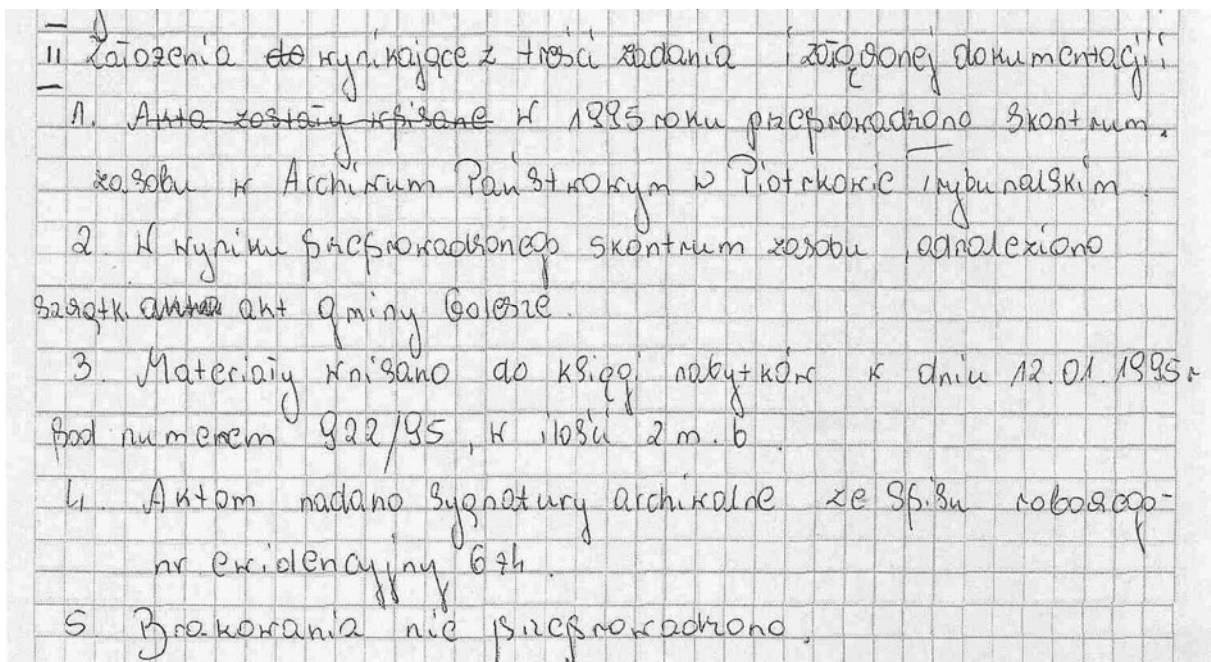 II Założenia do wynikające z treści zadania i załączonej dokumentacji:
1. Akta zostały wpisane W 1995 roku przeprowadzono skontrum
zasobu w Archiwum Państwowym w Piotrkowie Trybunalskim.
2. W wyniku przeprowadzonego skontrum zasobu, odnaleziono
szczątk. akt gminy Golesze.
3. Materiały wpisano do księgi nabytków w dniu 12.01.1995r
pod numerem 922/95, w ilości 2 m.b.
4. Aktom nadano sygnatury archiwalne ze spisu roboczego -
nr ewidencyjny 674.
5. Brakowania nie przeprowadzono.